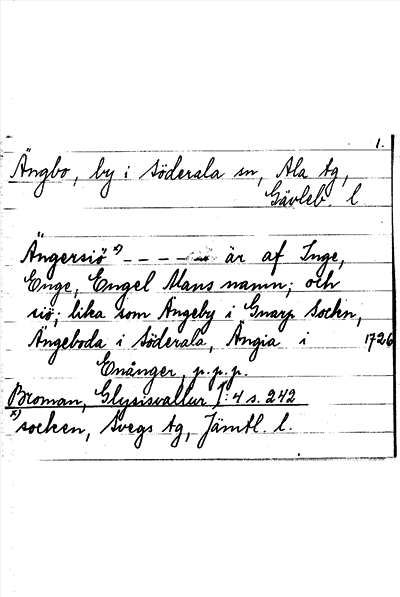 1.
Ängbo, by i Söderala sn, Ala tg,
Gävleb. l.
Ängersiö x) - - - - - är af Inge,
Enge, Engel Mans namn; och
siö; lika som Ängeby i Gnarp Sockn,
Ängeboda i Söderala, Ängia i 1726
Enånger, p.p.p.
Broman, Glysisvallur I:4 s. 242
x) socken, Svegs tg, Jämtl. l.